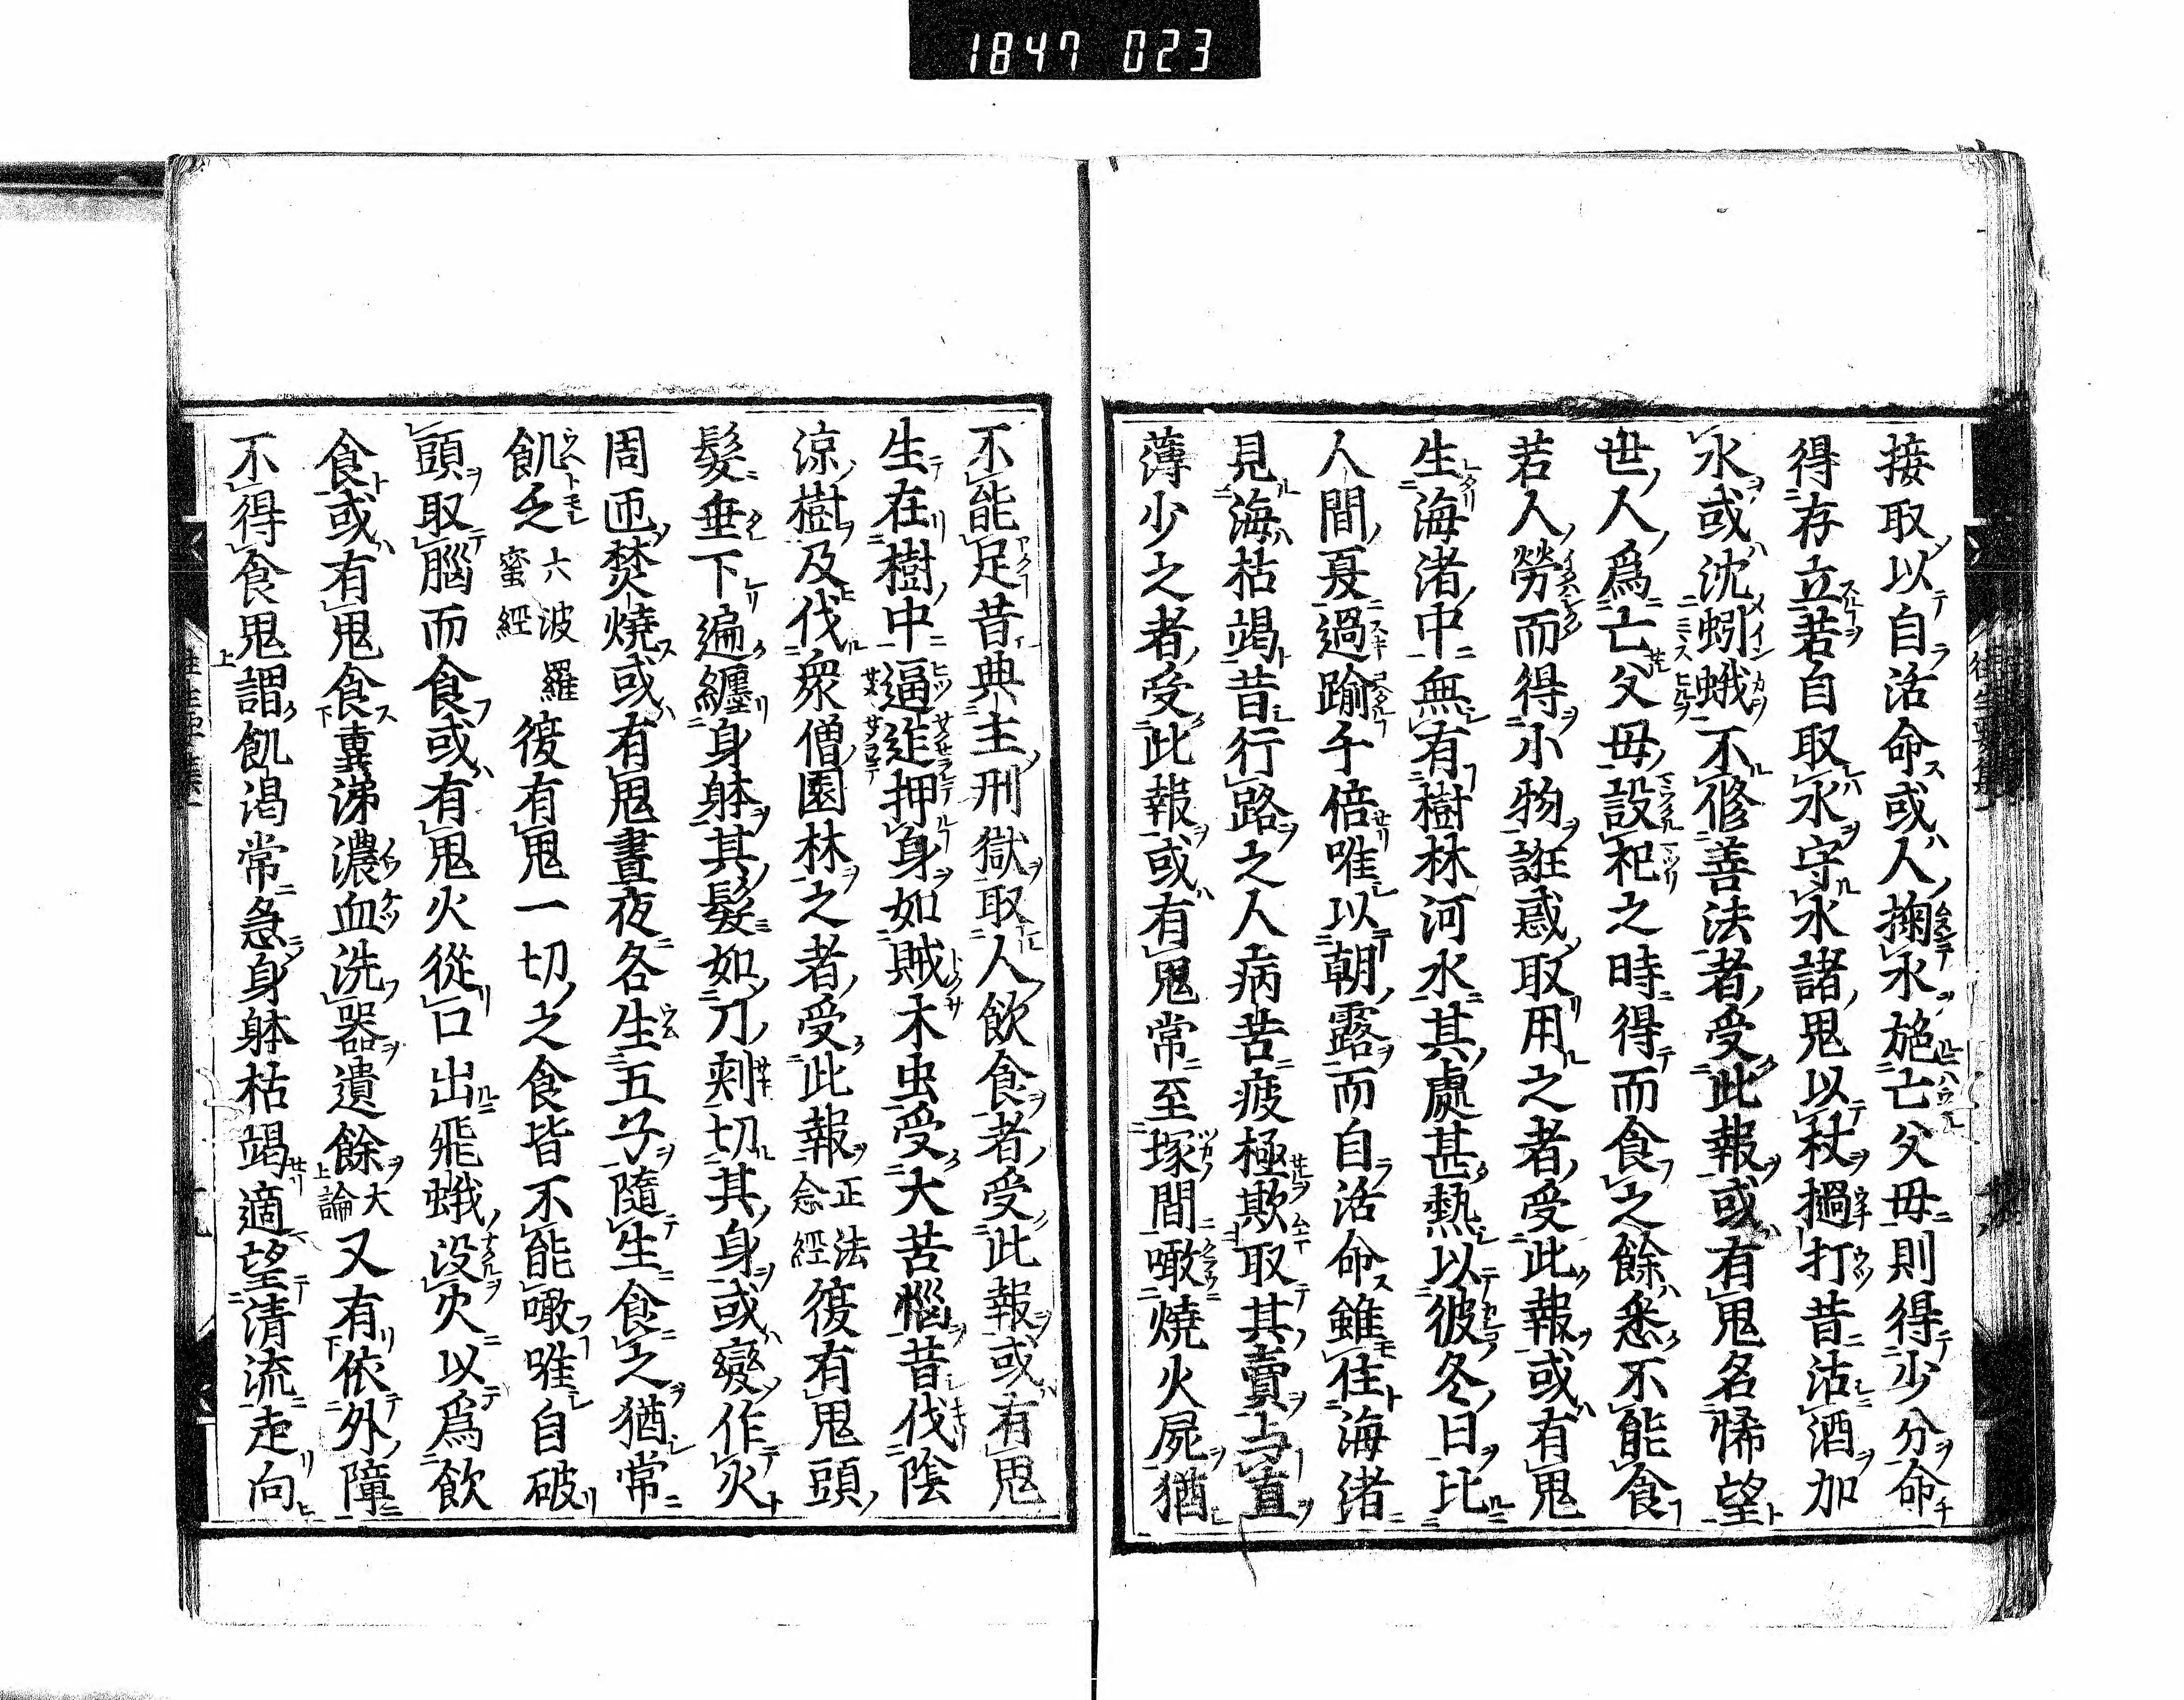 1847 023
接取以自活命或人掬水施亡父母則得少分命
得存立若自取水守水諸鬼以杖撾打昔沽酒加
水或沈蚓蛾不修善法者受此報或有鬼名悕望
世人為亡父母設祀之時得而食之餘悉不能食
若人勞而得小物誑惑取用之者受此報或有鬼
生海渚中無有樹林河水其處甚熱以彼冬日比
人間夏過踰千倍唯以朝露而自活命雖住海渚
見海枯竭昔行路之人病苦疲極欺取其賣与直
薄少之者受此報或有鬼常至塚間噉燒火屍猶
不能足昔典主刑獄取人飲食者受此報或有鬼
生在樹中逼迮押身如賊木虫受大苦惱昔伐陰
涼樹及伐衆僧園林之者受此報正法念經復有鬼頭
髮垂下遍纏身躰其髮如刀刺切其身或變作火
周匝焚燒或有鬼晝夜各生五子隨生食之猶常
飢乏六波羅蜜經復有鬼一切之食皆不能噉唯自破
頭取腦而食或有鬼火從口出飛蛾投火以爲飲
食或有鬼食糞涕濃血洗器遺餘大論又有依外障
不得食鬼謂飢渴常急身躰枯竭適望清流走向